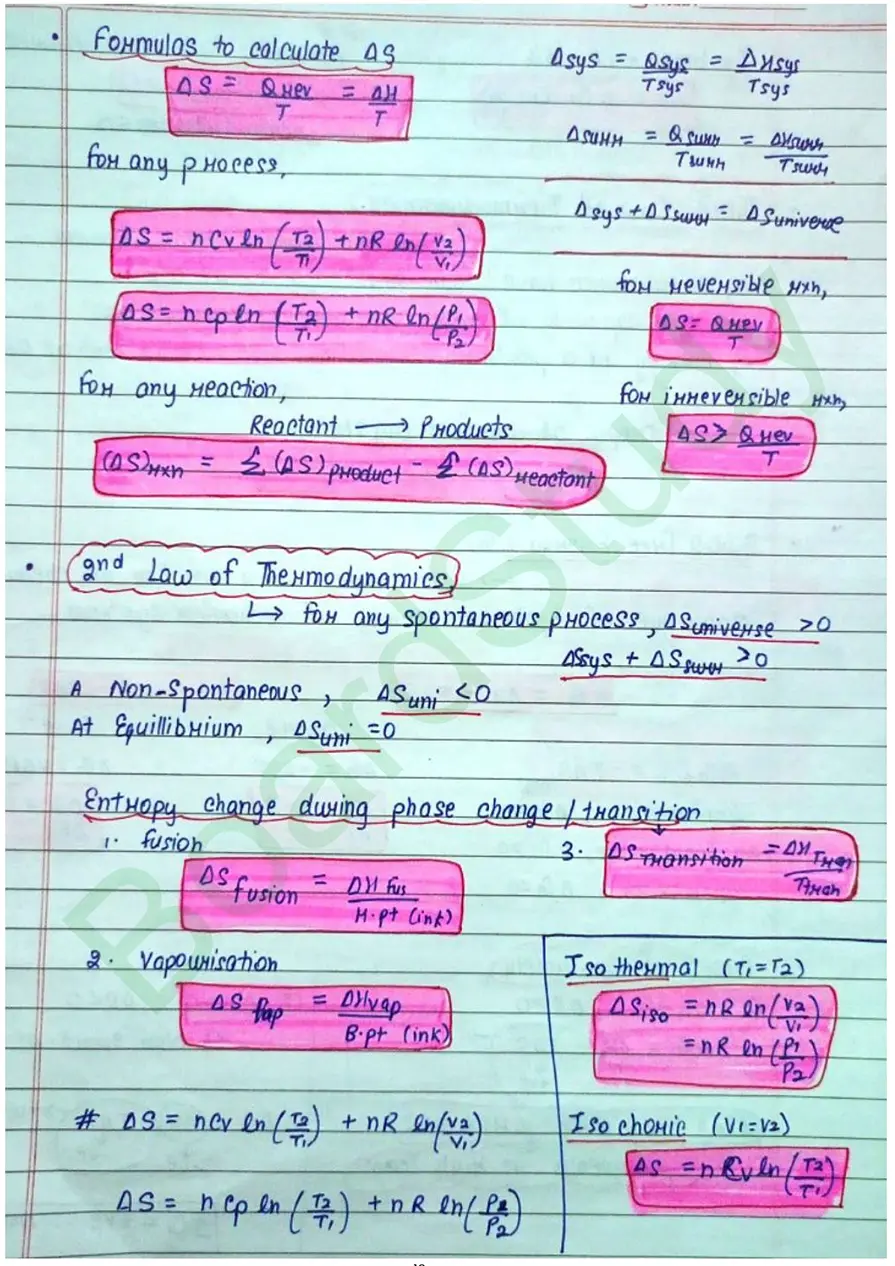 • Formulas to calculate ΔS
ΔS = Qrev/T = ΔH/T
for any process,
ΔS = nCv ln (T2/T1) + nR ln (V2/V1)
ΔS = n Cp ln (T2/T1) + nR ln (P1/P2)
for any reaction,
Reactant ⟶ Products
(ΔS)rxn = Σ (ΔS)product - Σ (ΔS)reactant
Δsys = Qsys/Tsys = ΔHsys/Tsys
Δsurr = Qsurr/Tsurr = ΔHsurr/Tsurr
Δsys + ΔSsurr = ΔSuniverse
for reversible rxn,
ΔS = Qrev/T
for irreversible rxn,
ΔS > Qrev/T
• 2nd Law of Thermodynamics
↳ for any spontaneous process, ΔSuniverse >0
ΔSsys + ΔSsurr >0
A Non-Spontaneous, ΔSuni <0
At Equillibrium, ΔSuni =0
Entropy change during phase change / transition
1. fusion
ΔSfusion = ΔHfus/M.pt (ink)
2. Vapourisation
ΔSvap = ΔHvap/B.pt (ink)
3. ΔSTransition = ΔHTran/Tran
# ΔS = nCv ln (T2/T1) + nR ln (V2/V1)
ΔS = n Cp ln (T2/T1) + nR ln (P2/P2)
Iso thermal (T1=T2)
ΔSiso = nR ln (V2/V1)
= nR ln (P1/P2)
Iso choric (V1=V2)
ΔS = n Cv ln (T2/T1)
BoardStudy